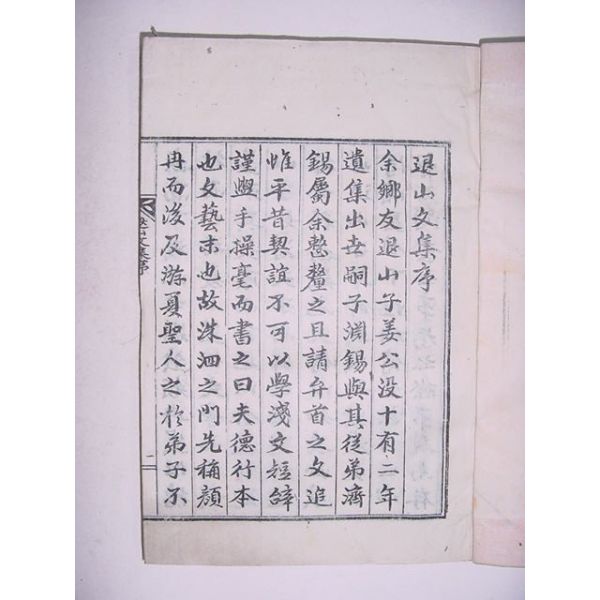 退山文集序
余鄉友退山子姜公没十有二年
遺集出世嗣子淵錫與其從弟濟
錫屬余憗釐之且請弁首之文追
惟平昔契誼不可以學淺文短辞
謹與手操毫而書之曰夫德行本
也文藝末也故洙泗之門先稱顏
冉而後及游夏聖人之於弟子不
退山文集序
一